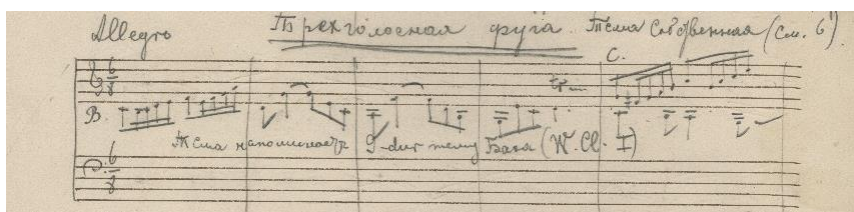 Allegro Трехголосная фуга. Тема собственная (см. 6)
C.
6
8
B.
Тема напоминает G-dur тему Баха (W. Cl. I)
6
8